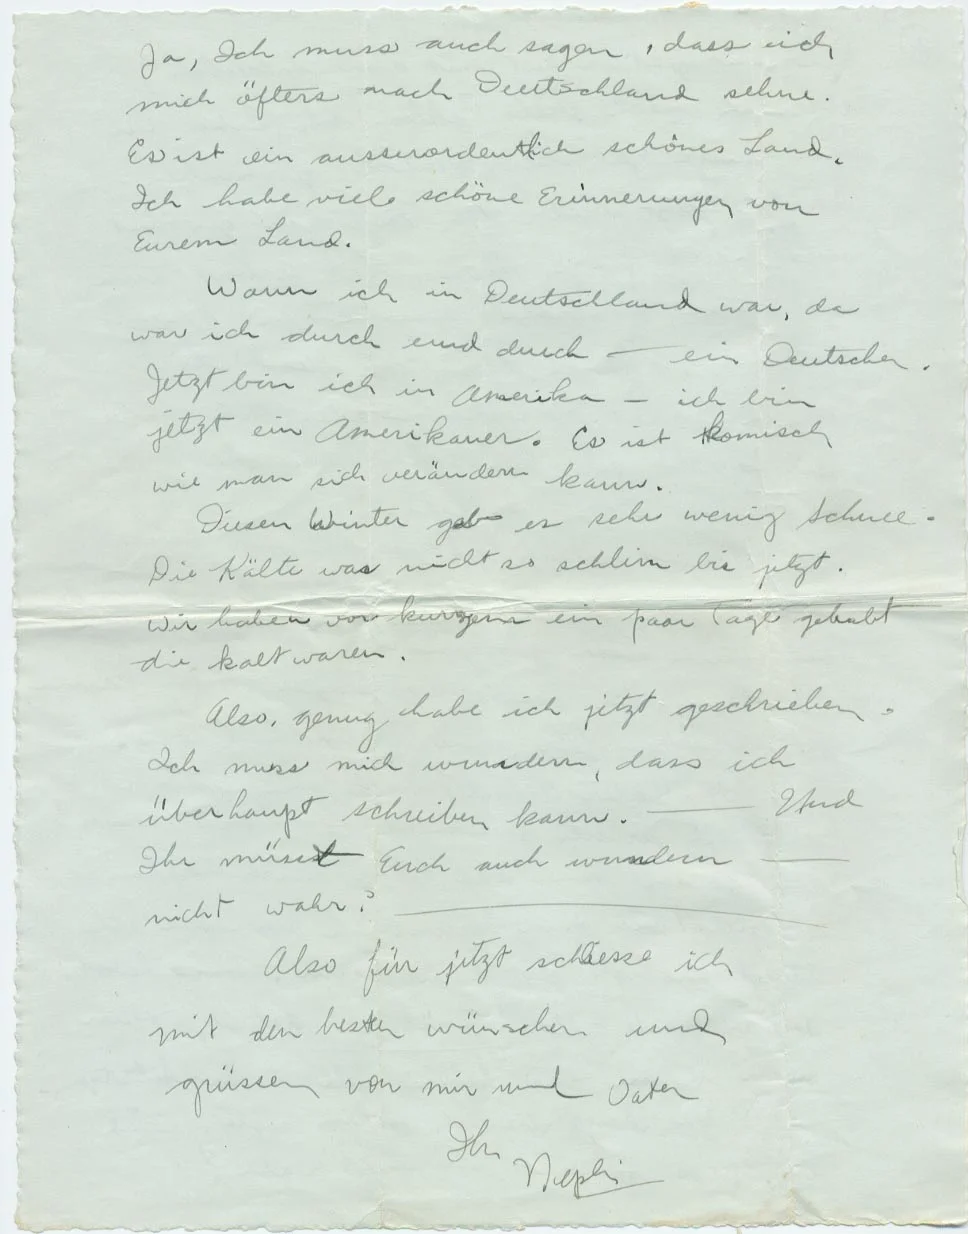 Ja, Ich muss auch sagen, dass ich
mich öfters nach Deutschland sehne.
Es ist ein ausserordentlich schönes Land.
Ich habe viele schöne Erinnerungen von
Eurem Land.
Wann ich in Deutschland war, da
war ich durch und durch — ein Deutscher.
Jetzt bin ich in Amerika — ich bin
jetzt ein Amerikaner. Es ist komisch
wie man sich verändern kann.
Diesen Winter gab es sehr wenig Schnee.
Die Kälte was nicht so schlim bis jetzt.
Wir haben vor kurzem ein paar Tage gehabt
die kalt waren.
Also, genug habe ich jetzt geschrieben.
Ich muss mich wundern, dass ich
überhaupt schreiben kann. — Und
Ihr müsst Euch auch wundern —
nicht wahr? —
Also für jetzt schliesse ich
mit den besten wünschen und
grüssen von mir und Vater
Ihr